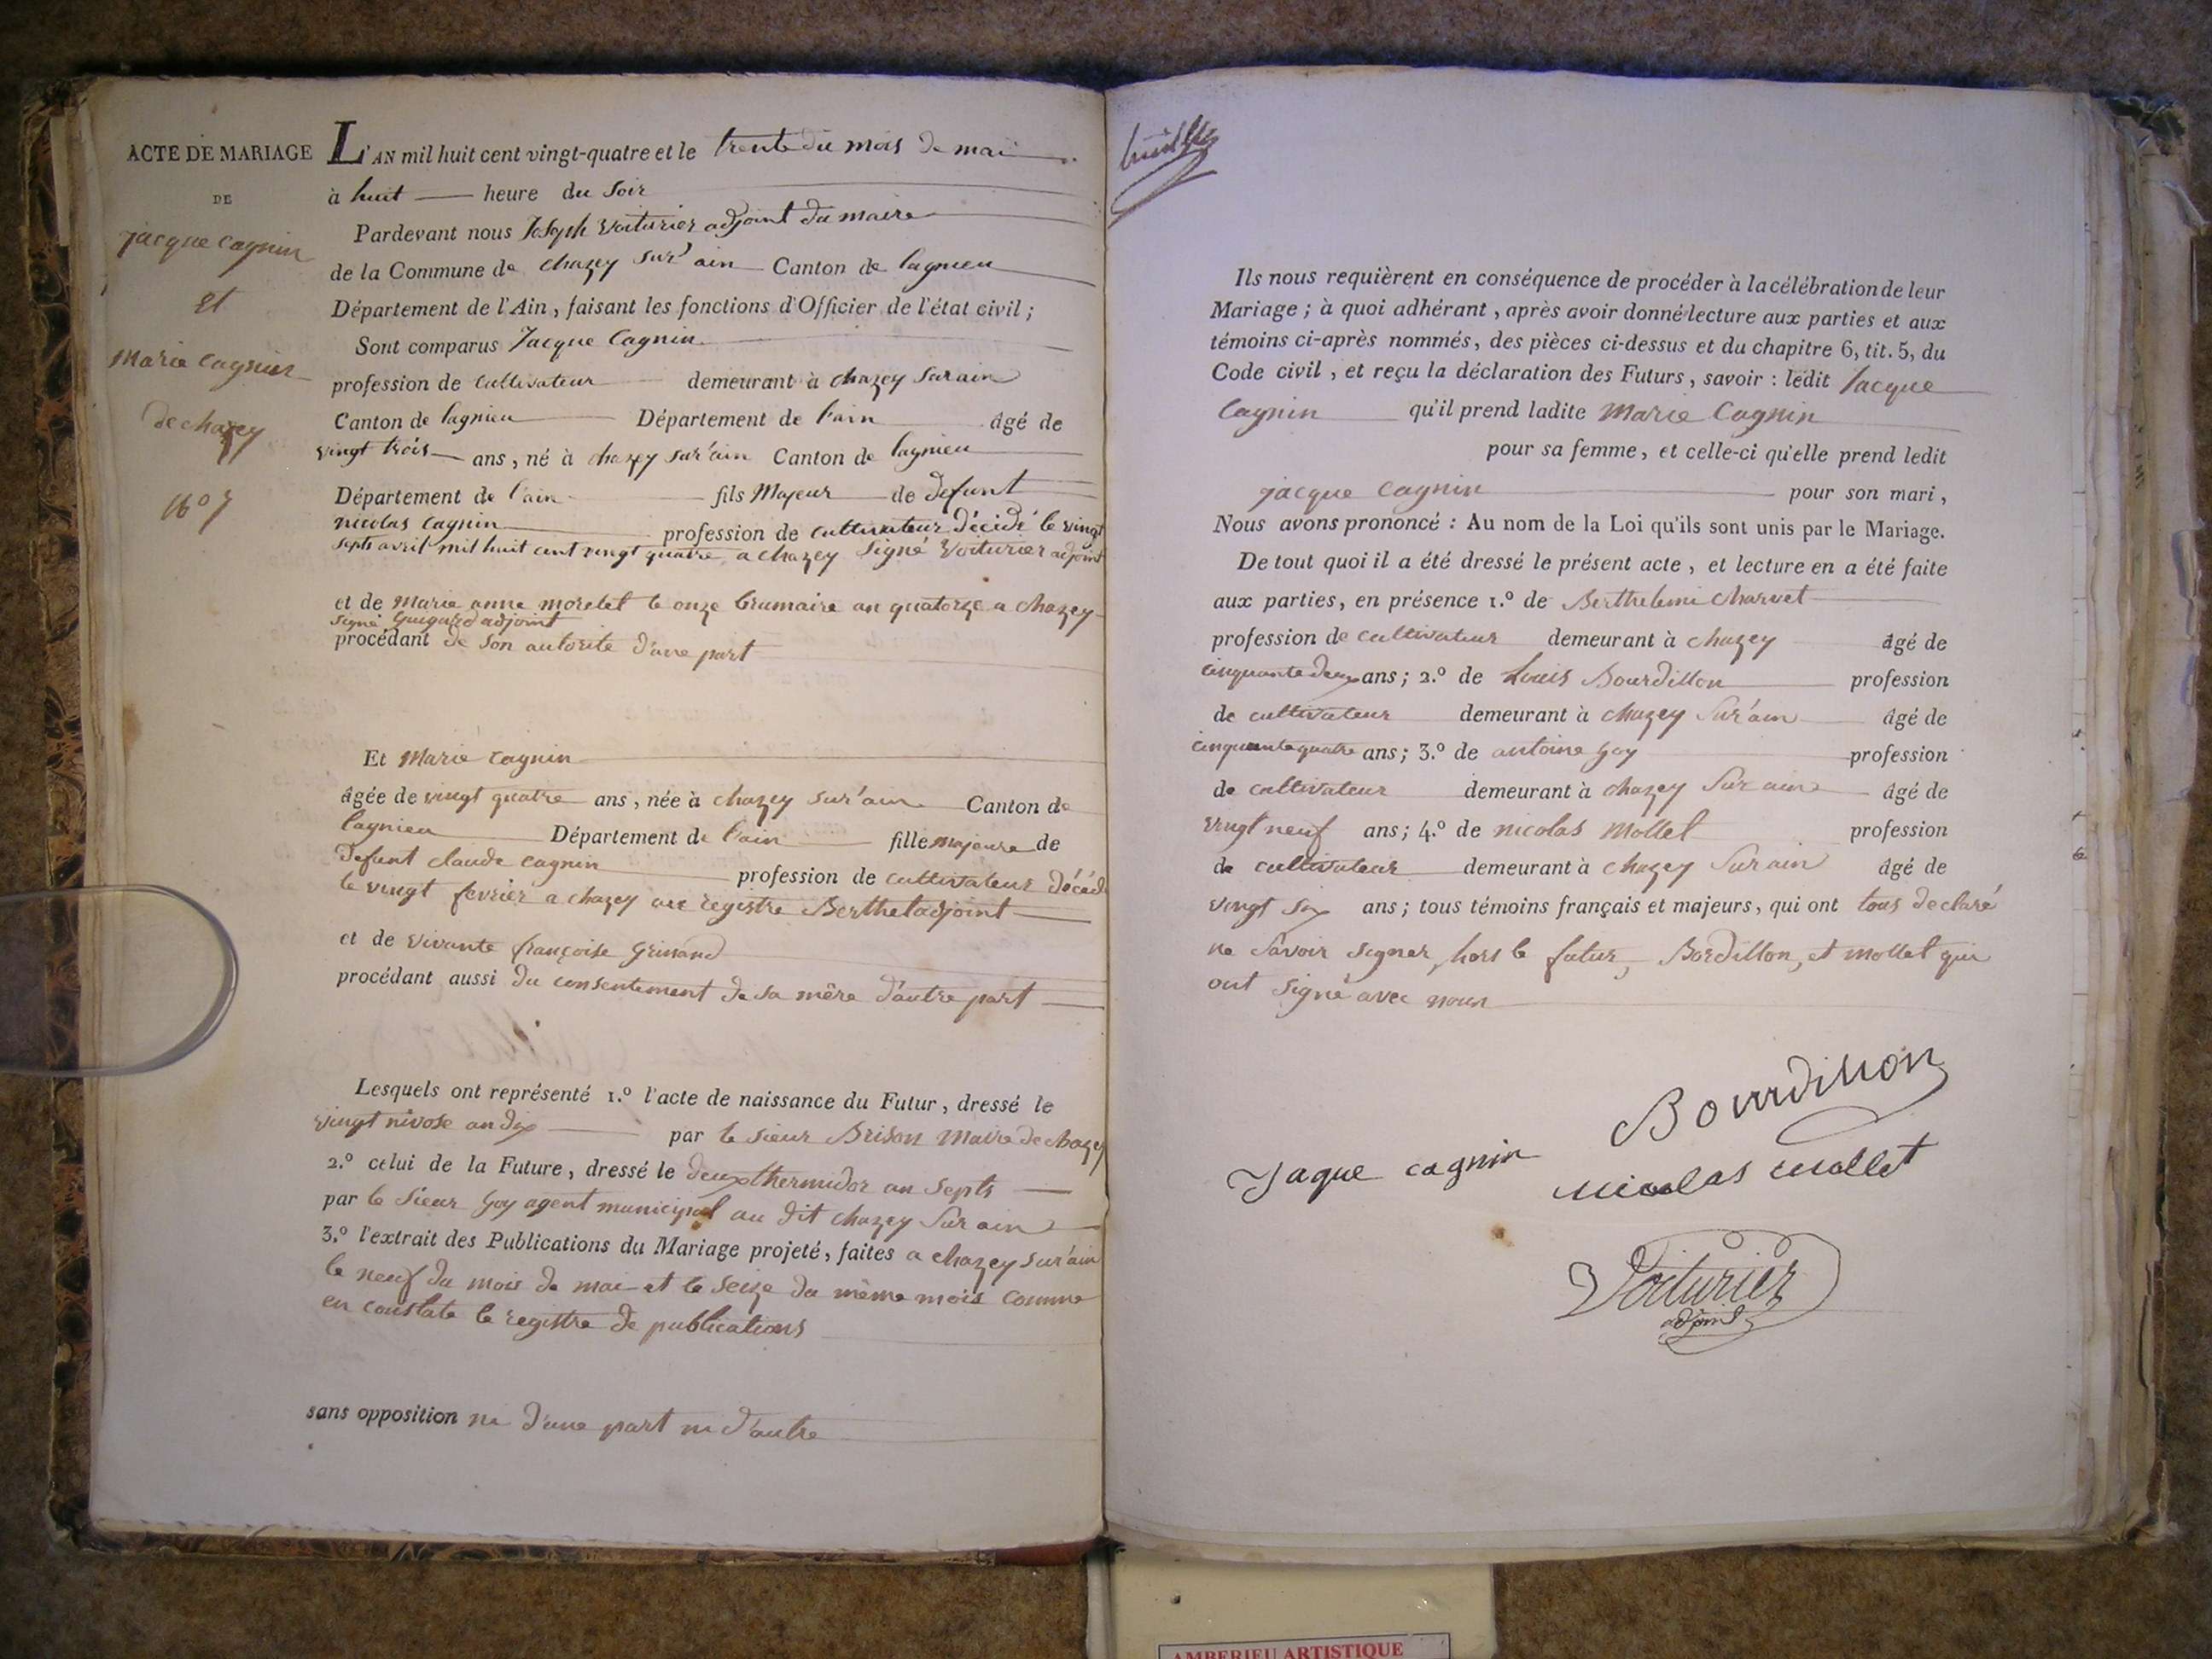 ACTE DE MARIAGE
DE
jacque cagnin
et
marie cagnin
de chazey
L'AN mil huit cent vingt-quatre et le trente du mois de mai
à huit heure du soir
Pardevant nous Joseph Voiturier adjoint du maire
de la Commune de chazey sur ain Canton de lagnieu
Département de l'Ain, faisant les fonctions d'Officier de l'état civil;
Sont comparus Jacque Cagnin
profession de cultivateur demeurant à chazey sur ain
Canton de lagnieu Département de l'ain âgé de
vingt trois ans, né à chazey sur'ain Canton de lagnieu
Département de l'ain fils Majeur de defunt
nicolas cagnin profession de cultivateur décidé le vingt
septs avril mil huit cent vingt quatre a chazey signé Voiturier adjoint
et de marie anne morelet le onze brumaire an quatorze a chazey
signé Guigard adjoint
procédant de son autorite d'une part
Et Marie cagnin
âgée de vingt quatre ans, née à chazey sur'ain Canton de
lagnieu Département de l'ain fille majeure de
defunt claude cagnin profession de cultivateur décédé
le vingt fevrier a chazey au registre Berthet adjoint
et de vivante françoise
procédant aussi du consentement de sa mère d'autre part
Lesquels ont représenté 1.º l'acte de naissance du Futur, dressé le
vingt nivose an dix par le sieur Brison Maire de chazey
2.º celui de la Future, dressé le deux thermidor an septs
par le sieur Goy agent municipal au dit chazey sur ain
3.º l'extrait des Publications du Mariage projeté, faites a chazey sur'ain
le neuf du mois de mai et le seize du même mois comme
en constate le registre de publications
sans opposition ni d'une part ni d'autre
Ils nous requièrent en conséquence de procéder à la célébration de leur
Mariage; à quoi adhérant, après avoir donné lecture aux parties et aux
témoins ci-après nommés, des pièces ci-dessus et du chapitre 6, tit. 5, du
Code civil, et reçu la déclaration des Futurs, savoir: ledit Jacque
Cagnin qu'il prend ladite Marie Cagnin
pour sa femme, et celle-ci qu'elle prend ledit
jacque cagnin pour son mari,
Nous avons prononcé: Au nom de la Loi qu'ils sont unis par le Mariage.
De tout quoi il a été dressé le présent acte, et lecture en a été faite
aux parties, en présence 1.º de Berthelemi Charvet
profession de cultivateur demeurant à chazey âgé de
cinquante deux ans; 2.º de Louis Bourdillon profession
de cultivateur demeurant à chazey sur'ain âgé de
cinquante quatre ans; 3.º de antoine goy profession
de cultivateur demeurant à chazey sur ain âgé de
vingt neuf ans; 4.º de nicolas Mollet profession
de cultivateur demeurant à chazey sur ain âgé de
vingt six ans; tous témoins français et majeurs, qui ont tous declaré
ne savoir signer, hors le futur, Bordillon, et mollet qui
ont signé avec nous
Bourdillon
Jaque cagnin
nicolas mollet
Voiturier
adjoint
AMBERIEU ARTISTIQUE